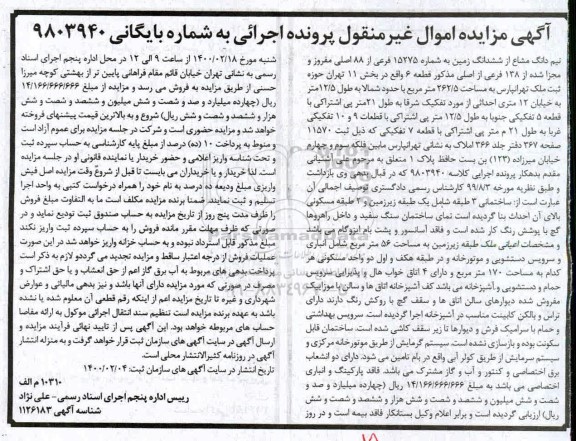 آگهی مزایده اموال غیرمنقول پرونده اجرائی به شماره بایگانی ۹۸۰۳۹۴۰
نیم دانگ مشاع از ششدانگ زمین به شماره ۱۵۲۷۵ فرعی از ۸۸ اصلی مفروز و
مجزا شده از ۱۳۸ فرعی از اصلی مذکور قطعه ۶ واقع در بخش ۱۱ تهران حوزه
ثبت ملک تهرانپارس به مساحت ۲۶۲/۵ متر مربع با حدود شمالا به طول ۱۲/۵متر
به خیابان ۱۲ متری احداثی از مورد تفکیک شرقا به طول ۲۱متر پی اشتراکی با
قطعه ۵ تفکیکی جنوبا به طول ۱۲/۵ متر پی اشتراکی با قطعات ۹ و ۱۰ تفکیکی
غربا به طول ۲۱ م متر پی اشتراکی با قطعه ۷ تفکیکی که ذیل ثبت ۱۱۵۷۰
صفحه ۳۶۷ دفتر جلد ۳۶۶ املاک به نشانی تهرانپارس مابین فلکه سوم و چهارم
خیابان میرزاده (۱۲۳) بن بست حافظ پلاک ۱ متعلق به
مقدم بدهکار پرونده اجرایی کلاسه: ۹۸۰۳۹۴۰ که در قبال بدهی وی بازداشت
و طبق نظریه مورخه ۹۹/۸/۳ کارشناس رسمی دادگستری توصیف اجمالی آن
عبارت است از: ساختمانی ۳ طبقه شامل یک طبقه زیرزمین و ۲ طبقه مسکونی
بالای آن احداث بنا گردیده است نمای ساختمان سنگ سفید و داخل راهروها
گچ با پوشش رنگ کار شده است و فاقد آسانسور و پشت بام ایزوگام می باشد
و مشخصات اعیانی ملک طبقه زیرزمین به مساحت ۵۶ متر مربع شامل انباری
و سرویس دستشویی و موتورخانه و در طبقه همکف و اول دو واحد مسکونی هر
کدام به مساحت ۱۷۰ متر مربع و دارای ۴ اتاق خواب هال و پذیرایی سرویس
حمام و دستشویی و آشپزخانه می باشد کف آشپزخانه اتاق ها و سالن با موزاییک
مفروش شده دیوارهای سالن اتاق ها و سقف گچ با روکش رنگ دارند دارای
تراس و بالکن کابینت مناسب در آشپزخانه اجرا گردیده است. سرویس بهداشتی
و حمام با سرامیک فرش و دیوارها تا زیر سقف کاشی شده است. ساختمان قابل
سکونت بوده و بازسازی نشده است. سیستم گرمایش از طریق موتورخانه مرکزی و
سیستم سرمایش از طریق کولر آبی واقع در بام تامین می شود. دارای دو انشعاب
برق اختصاصی و کنتور و آب و گاز مشترک می باشد. فاقد پارکینگ و انباری
اختصاصی می باشد به مبلغ ۱۴/۱۶۶/۶۶۶/۶۶۶ ریال (چهارده میلیارد و صد و
شصت و شش میلیون و ششصد و شصت و شش هزار و ششصد و شصت و شش
ریال) ارزیابی گردیده است و برابر اعلام وکیل بستانکار فاقد بیمه است و در روز
شنبه مورخ ۱۴۰۰/۰۲/۱۸ از ساعت ۹ الی ۱۲ در محل اداره پنجم اجرای اسناد
رسمی به نشانی تهران خیابان قائم مقام فراهانی پایین تر از بهشتی کوچه میرزا
حسنی از طریق مزایده به فروش می رسد و مزایده از مبلغ ۱۴/۱۶۶/۶۶۶/۶۶۶
ریال (چهارده میلیارد و صد و شصت و شش میلیون و ششصد و شصت و شش
هزار و ششصد و شصت و شش ریال) شروع و به بالاترین قیمت پیشنهادی فروخته
خواهد شد و مزایده حضوری است و شرکت در جلسه مزایده برای عموم آزاد است
و منوط به پرداخت ۱۰ (ده) درصد از مبلغ پایه کارشناسی به حساب سپرده ثبت
و تحت شناسه واریز اعلامی و حضور خریدار یا نماینده قانونی او در جلسه مزایده
است. لذا خریدار و یا خریداران می بایست تا قبل از شروع وقت مزایده اصل فیش
واریزی مبلغ ودیعه ده درصد به نام خود را همراه درخواست کتبی به واحد اجرا
تسلیم و ثبت نمایند، ضمنا برنده مزایده مکلف است ما به التفاوت مبلغ فروش
را ظرف مدت پنج روز از تاریخ مزایده به حساب صندوق ثبت تودیع نماید و در
صورتی که ظرف مهلت مقرر مانده فروش را به حساب سپرده ثبت واریز نکند
مبلغ مذکور قابل استرداد نبوده و به حساب خزانه واریز خواهد شد. در این صورت
عملیات فروش از درجه اعتبار ساقط و مزایده تجدید می گردد و لازم به ذکر است
پرداخت بدهی های مربوط به آب برق گاز اعم از حق انشعاب و یا حق اشتراک و
مصرف در صورتی که مورد مزایده دارای آنها باشد و نیز بدهی مالیاتی و عوارض
شهرداری و غیره تا تاریخ مزایده اعم از اینکه رقم قطعی آن معلوم شده یا نشده
باشد به عهده برنده مزایده است تنظیم سند انتقال اجرائی موکول به ارائه مفاصا
حساب های مربوطه خواهد بود. این آگهی پس از تایید نهائی فرآیند مزایده و
ارسال آگهی در سایت آگهی های سازمان ثبت قرار خواهد گرفت و به منزله انتشار
آگهی در روزنامه کثیرالانتشار محلی است.
تاریخ انتشار در سایت آگهی های سازمان ثبت: ۱۴۰۰/۰۲/۰۴
۱۰۳۱۰ م الف
رییس اداره پنجم اجرای اسناد رسمی - علی نژاد
شناسه آگهی ۱۱۲۶۱۸۳